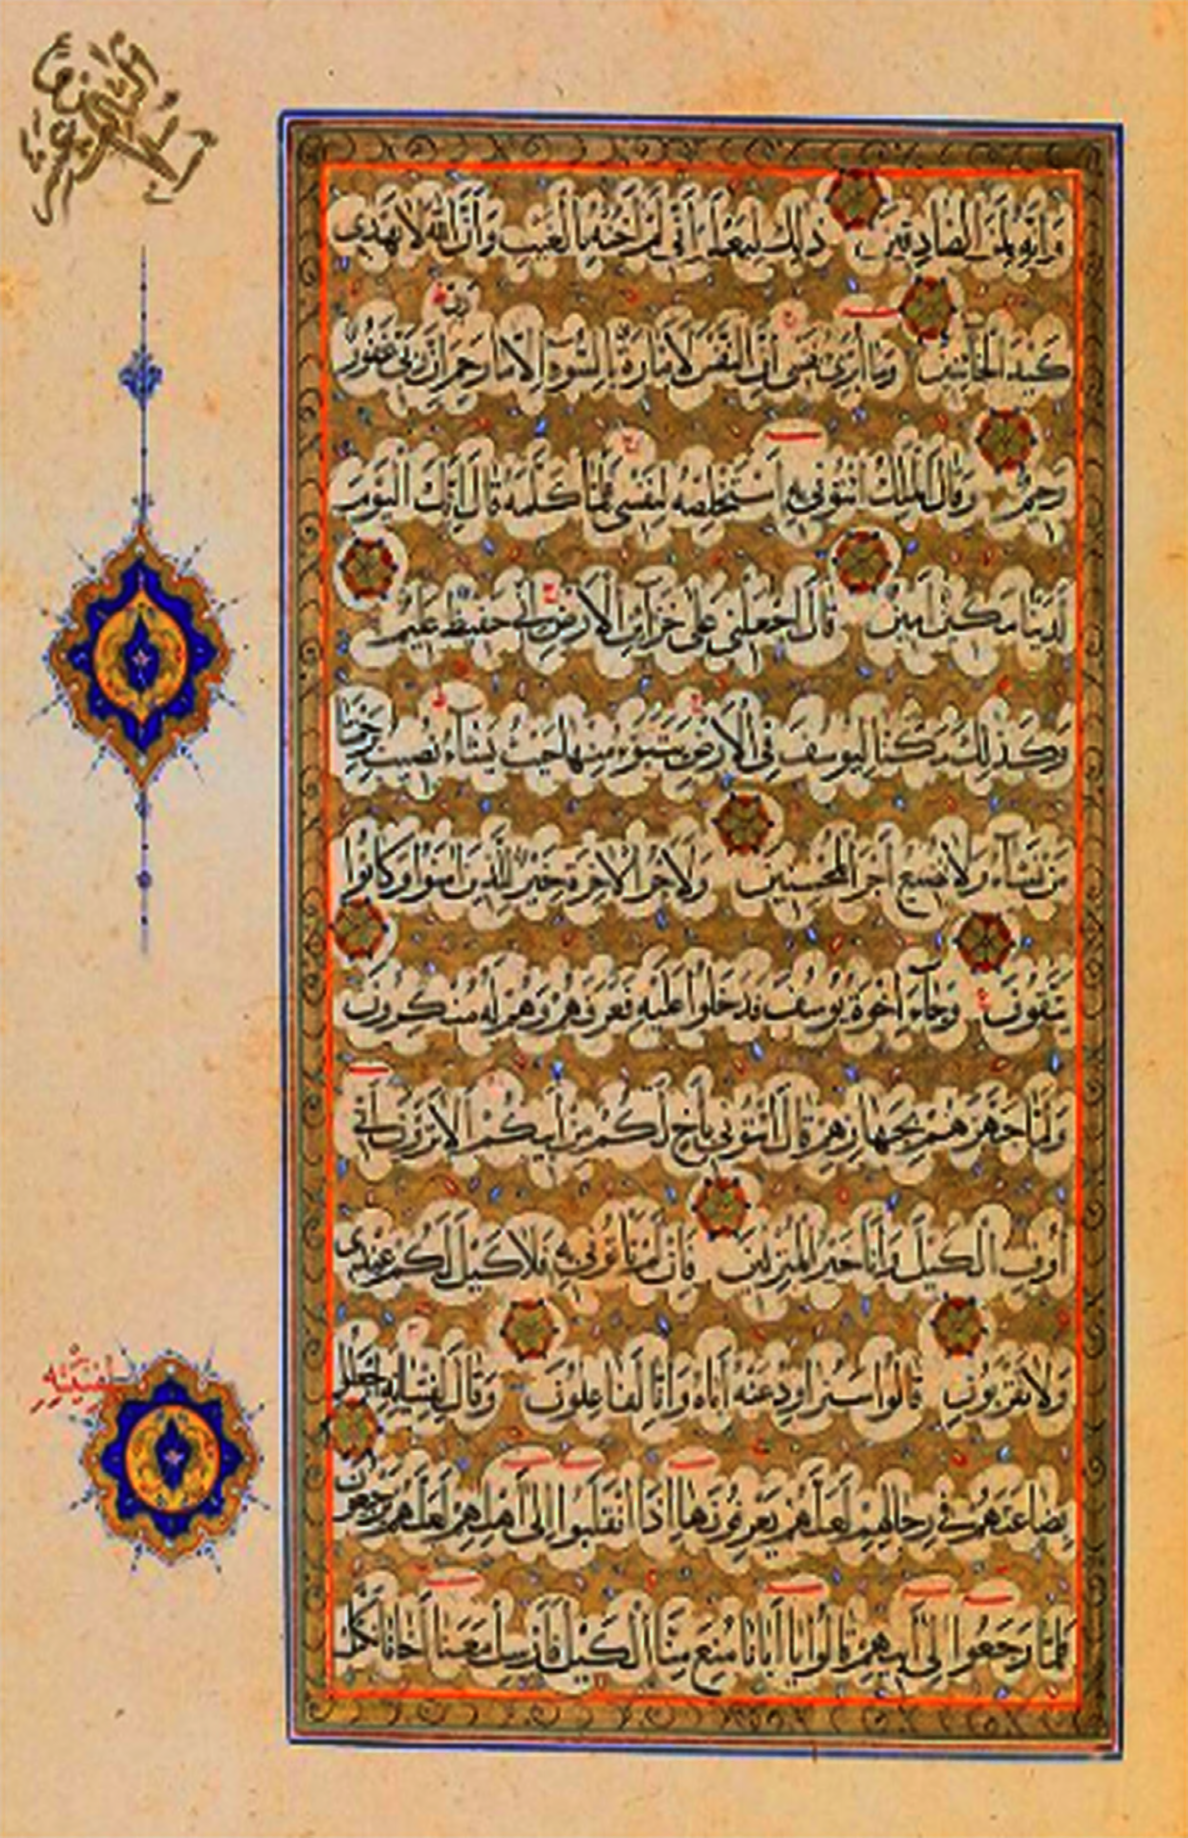 وَإِنَّهُ لَمِنَ الصَّادِقِينَ ذَلِكَ لِيَعْلَمَ أَنِّي لَمْ أَخُنْهُ بِالْغَيْبِ وَأَنَّ اللَّهَ لَا يَهْدِي
كَيْدَ الْخَائِنِينَ وَمَا أُبَرِّئُ نَفْسِي إِنَّ النَّفْسَ لَأَمَّارَةٌ بِالسُّوءِ إِلَّا مَا رَحِمَ رَبِّي إِنَّ رَبِّي غَفُورٌ
رَحِيمٌ وَقَالَ الْمَلِكُ ائْتُونِي بِهِ أَسْتَخْلِصْهُ لِنَفْسِي فَلَمَّا كَلَّمَهُ قَالَ إِنَّكَ الْيَوْمَ
لَدَيْنَا مَكِينٌ أَمِينٌ قَالَ اجْعَلْنِي عَلَى خَزَائِنِ الْأَرْضِ إِنِّي حَفِيظٌ عَلِيمٌ
وَكَذَلِكَ مَكَّنَّا لِيُوسُفَ فِي الْأَرْضِ يَتَبَوَّءُ مِنْهَا حَيْثُ يَشَاءُ نُصِيبُ بِرَحْمَتِنَا
مَنْ نَشَاءُ وَلَا نُضِيعُ أَجْرَ الْمُحْسِنِينَ وَلَأَجْرُ الْآخِرَةِ خَيْرٌ لِلَّذِينَ آمَنُوا وَكَانُوا
يَتَّقُونَ وَجَاءَ إِخْوَةُ يُوسُفَ فَدَخَلُوا عَلَيْهِ فَعَرَفَهُمْ وَهُمْ لَهُ مُنْكِرُونَ
وَلَمَّا جَهَّزَهُمْ بِجَهَازِهِمْ قَالَ ائْتُونِي بِأَخٍ لَكُمْ مِنْ أَبِيكُمْ أَلَا تَرَوْنَ أَنِّي
أُوفِي الْكَيْلَ وَأَنَا خَيْرُ الْمُنْزِلِينَ فَإِنْ لَمْ تَأْتُونِي بِهِ فَلَا كَيْلَ لَكُمْ عِنْدِي
وَلَا تَقْرَبُونِ قَالُوا سَنُرَاوِدُ عَنْهُ أَبَاهُ وَإِنَّا لَفَاعِلُونَ وَقَالَ لِفِتْيَانِهِ اجْعَلُوا
بِضَاعَتَهُمْ فِي رِحَالِهِمْ لَعَلَّهُمْ يَعْرِفُونَهَا إِذَا انْقَلَبُوا إِلَى أَهْلِهِمْ لَعَلَّهُمْ يَرْجِعُونَ
فَلَمَّا رَجَعُوا إِلَى أَبِيهِمْ قَالُوا يَا أَبَانَا مُنِعَ مِنَّا الْكَيْلُ فَأَرْسِلْ مَعَنَا أَخَانَا نَكْتَلْ
لِفِتْيَتِهِ